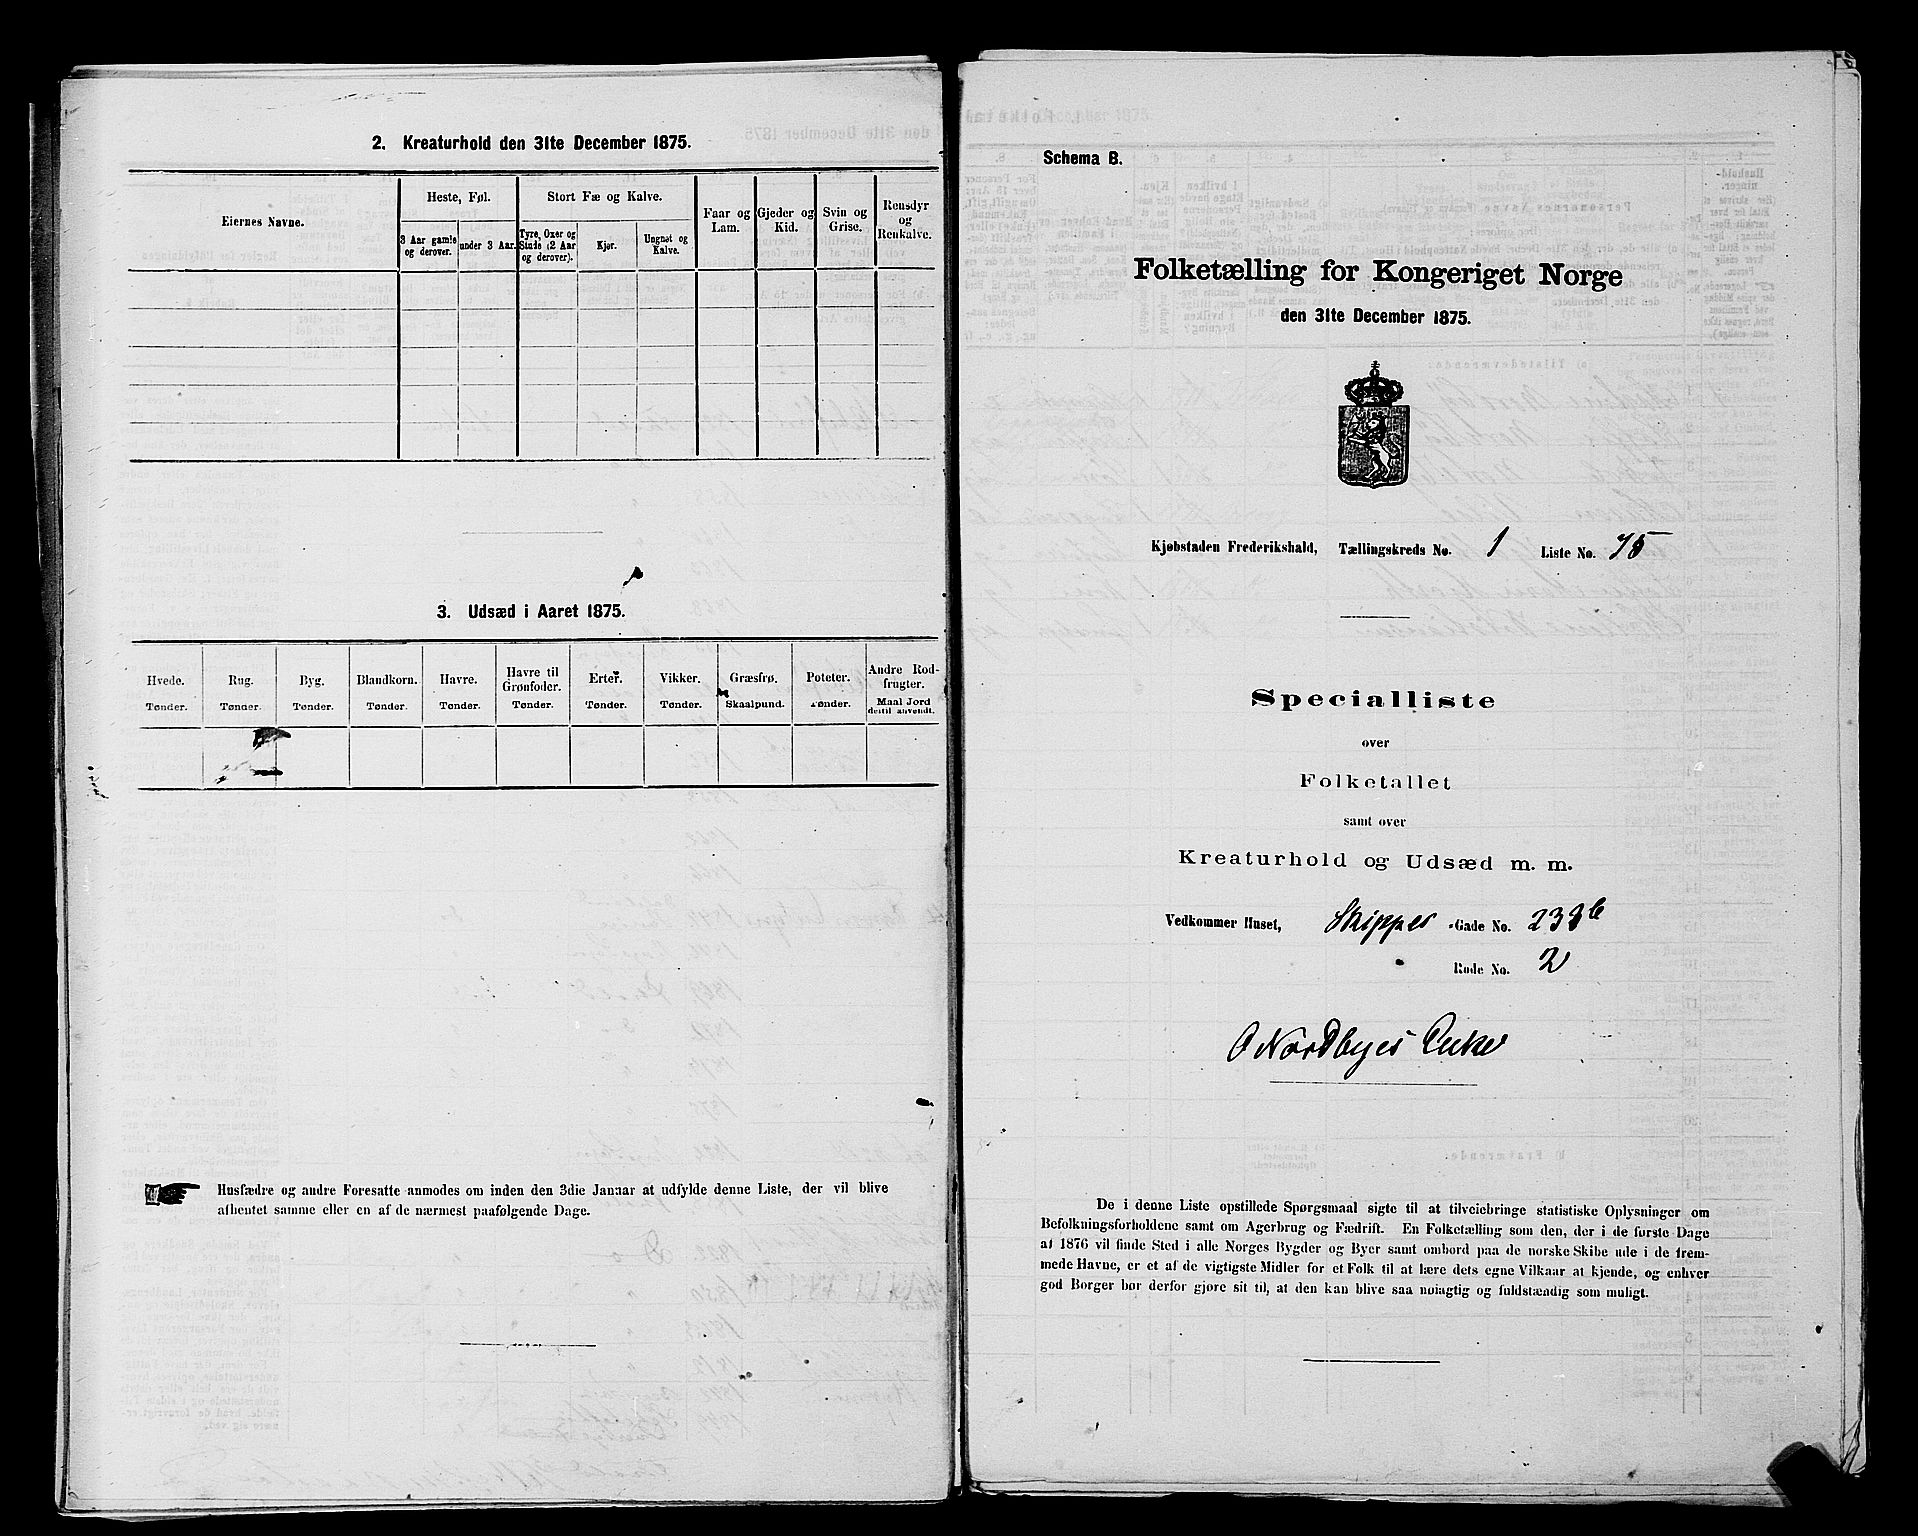 2. Kreaturhold den 31te December 1875.
Eiernes Navne.
Heste, Føl.
Stort Fæ og Kalve.
Faar og Lam.
Gjeder og Kid.
Svin og Grise.
Rensdyr og Renkalve.
3 Aar gamle og derover.
under 3 Aar.
Tyre, Oxer og Stude (2 Aar og derover).
Kjør.
Ungnøt og Kalve.
3. Udsæd i Aaret 1875.
Hvede.
Rug.
Byg.
Blandkorn.
Havre.
Havre til Grønfoder.
Erter.
Vikker.
Græsfrø.
Poteter.
Andre Rodfrugter.
Tønder.
Tønder.
Tønder.
Tønder.
Tønder.
Tønder.
Tønder.
Tønder.
Skaalpund.
Tønder.
Maal Jord dertil anvendt.
Husfædre og andre Foresatte anmodes om inden den 3die Januar at udfylde denne Liste, der vil blive
afhentet samme eller en af de nærmest paafølgende Dage.
Schema B.
Folketælling for Kongeriget Norge
den 31te December 1875.
Kjøbstaden Frederikshald, Tællingskreds No. 1 Liste No. 75
Specialliste
over
Folketallet
samt over
Kreaturhold og Udsæd m. m.
Vedkommer Huset, Skipper -Gade No. 238b
Rode No. 2
O Nordbyes Enke
De i denne Liste opstillede Spørgsmaal sigte til at tilveiebringe statistiske Oplysninger om
Befolkningsforholdene samt om Agerbrug og Fædrift. En Folketælling som den, der i de første Dage
af 1876 vil finde Sted i alle Norges Bygder og Byer samt ombord paa de norske Skibe ude i de frem-
mede Havne, er et af de vigtigste Midler for et Folk til at lære dets egne Vilkaar at kjende, og enhver
god Borger bør derfor gjøre sit til, at den kan blive saa nøiagtig og fuldstændig som muligt.